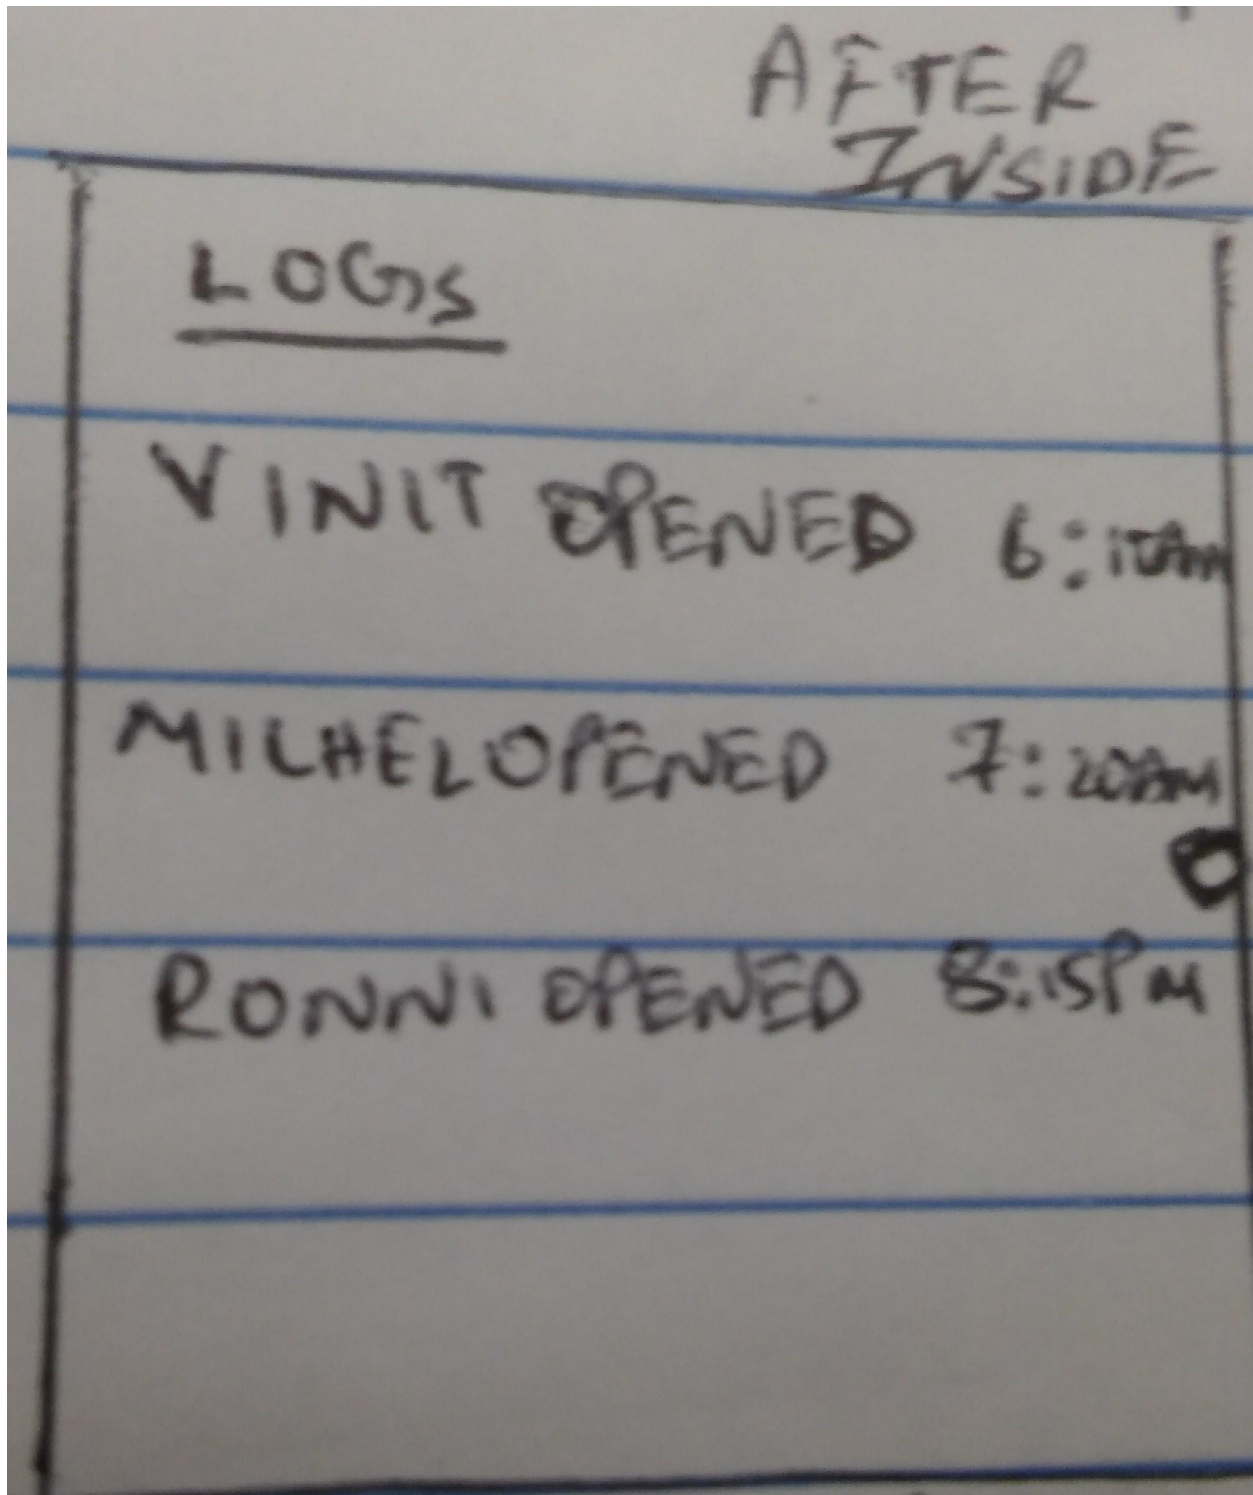 AFTER
INSIDE
LOGS
VINIT OPENED 6:10Am
MILHEL OPENED 7:20AM
RONNI OPENED 8:15PM